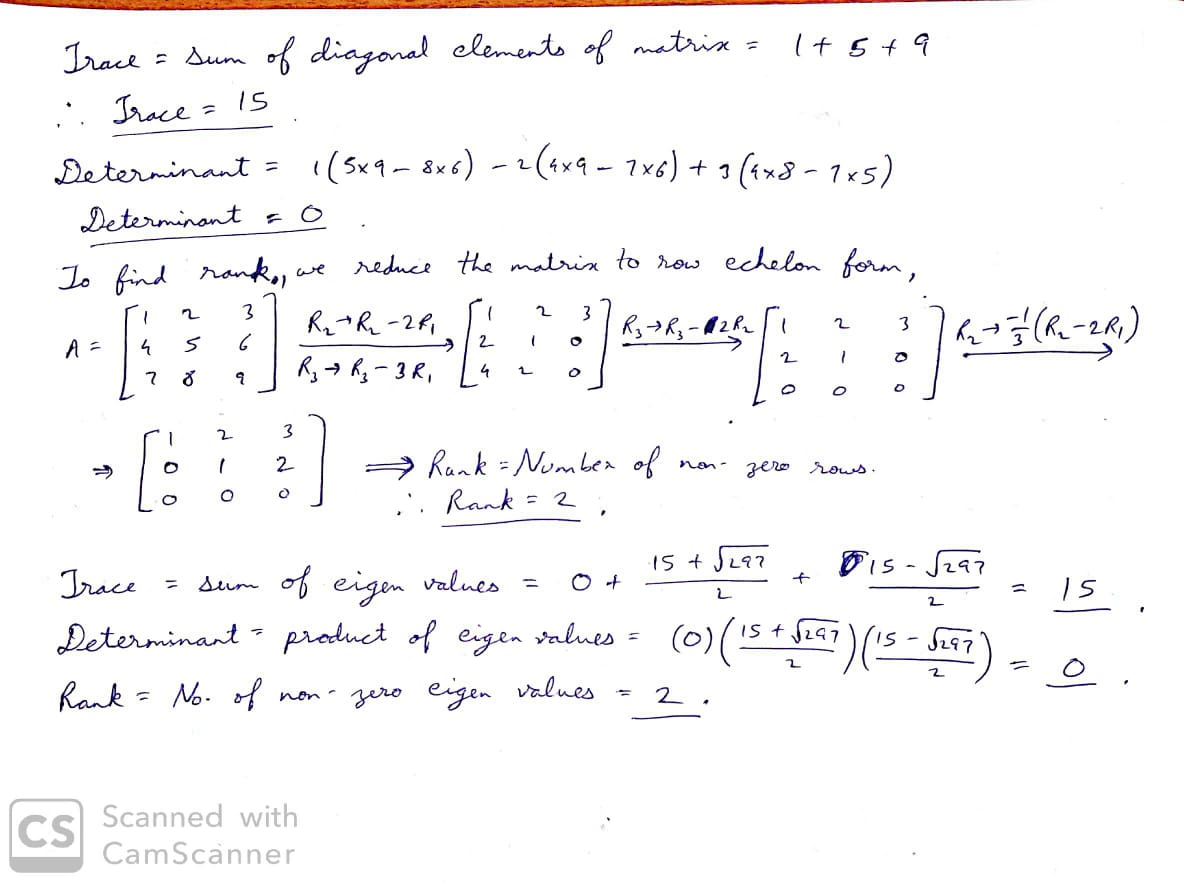 Trace = sum of diagonal elements of matrix = 1 + 5 + 9
∴ Trace = 15 .
Determinant = 1(5x9 - 8x6) - 2(4x9 - 7x6) + 3(4x8 - 7x5)
Determinant = 0 .
To find rank, we reduce the matrix to row echelon form,
A = [1 2 3; 4 5 6; 7 8 9] R₂→R₂-2R₁, R₃→R₃-3R₁ → [1 2 3; 2 1 0; 4 2 0] R₃→R₃-2R₂ → [1 2 3; 2 1 0; 0 0 0] R₂→-1/3(R₂-2R₁) →
⇒ [1 2 3; 0 1 2; 0 0 0] ⇒ Rank = Number of non-zero rows.
∴ Rank = 2 .
Trace = sum of eigen values = 0 + (15 + √297)/2 + (15 - √297)/2 = 15 .
Determinant = product of eigen values = (0)((15 + √297)/2)((15 - √297)/2) = 0 .
Rank = No. of non-zero eigen values = 2 .
CS Scanned with
CamScanner